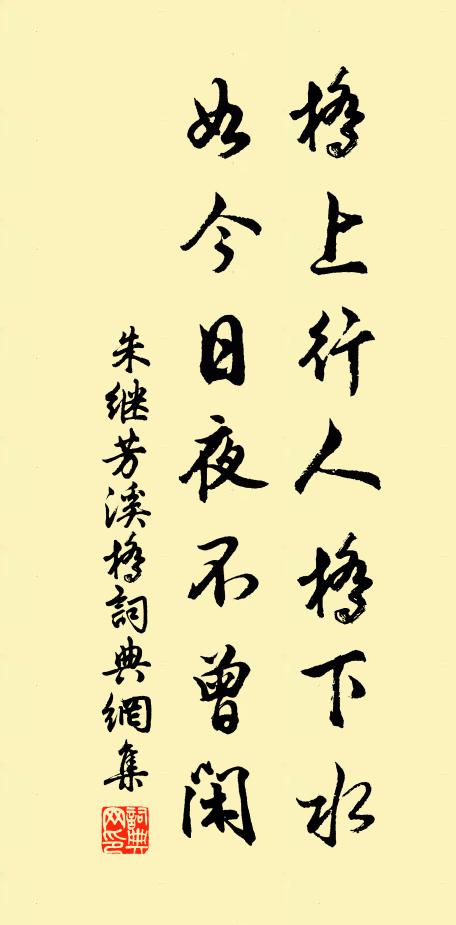 橋上行人橋下水
如今日夜不曾閑
朱继芳溪橋詞典網集
詞典网印